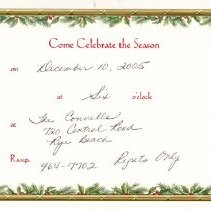 Come Celebrate the Season
on December 10, 2005
at Six o'clock
at The Connells
720 Central Road
Rye Beach
R.s.v.p. 964-7702 Regrets Only